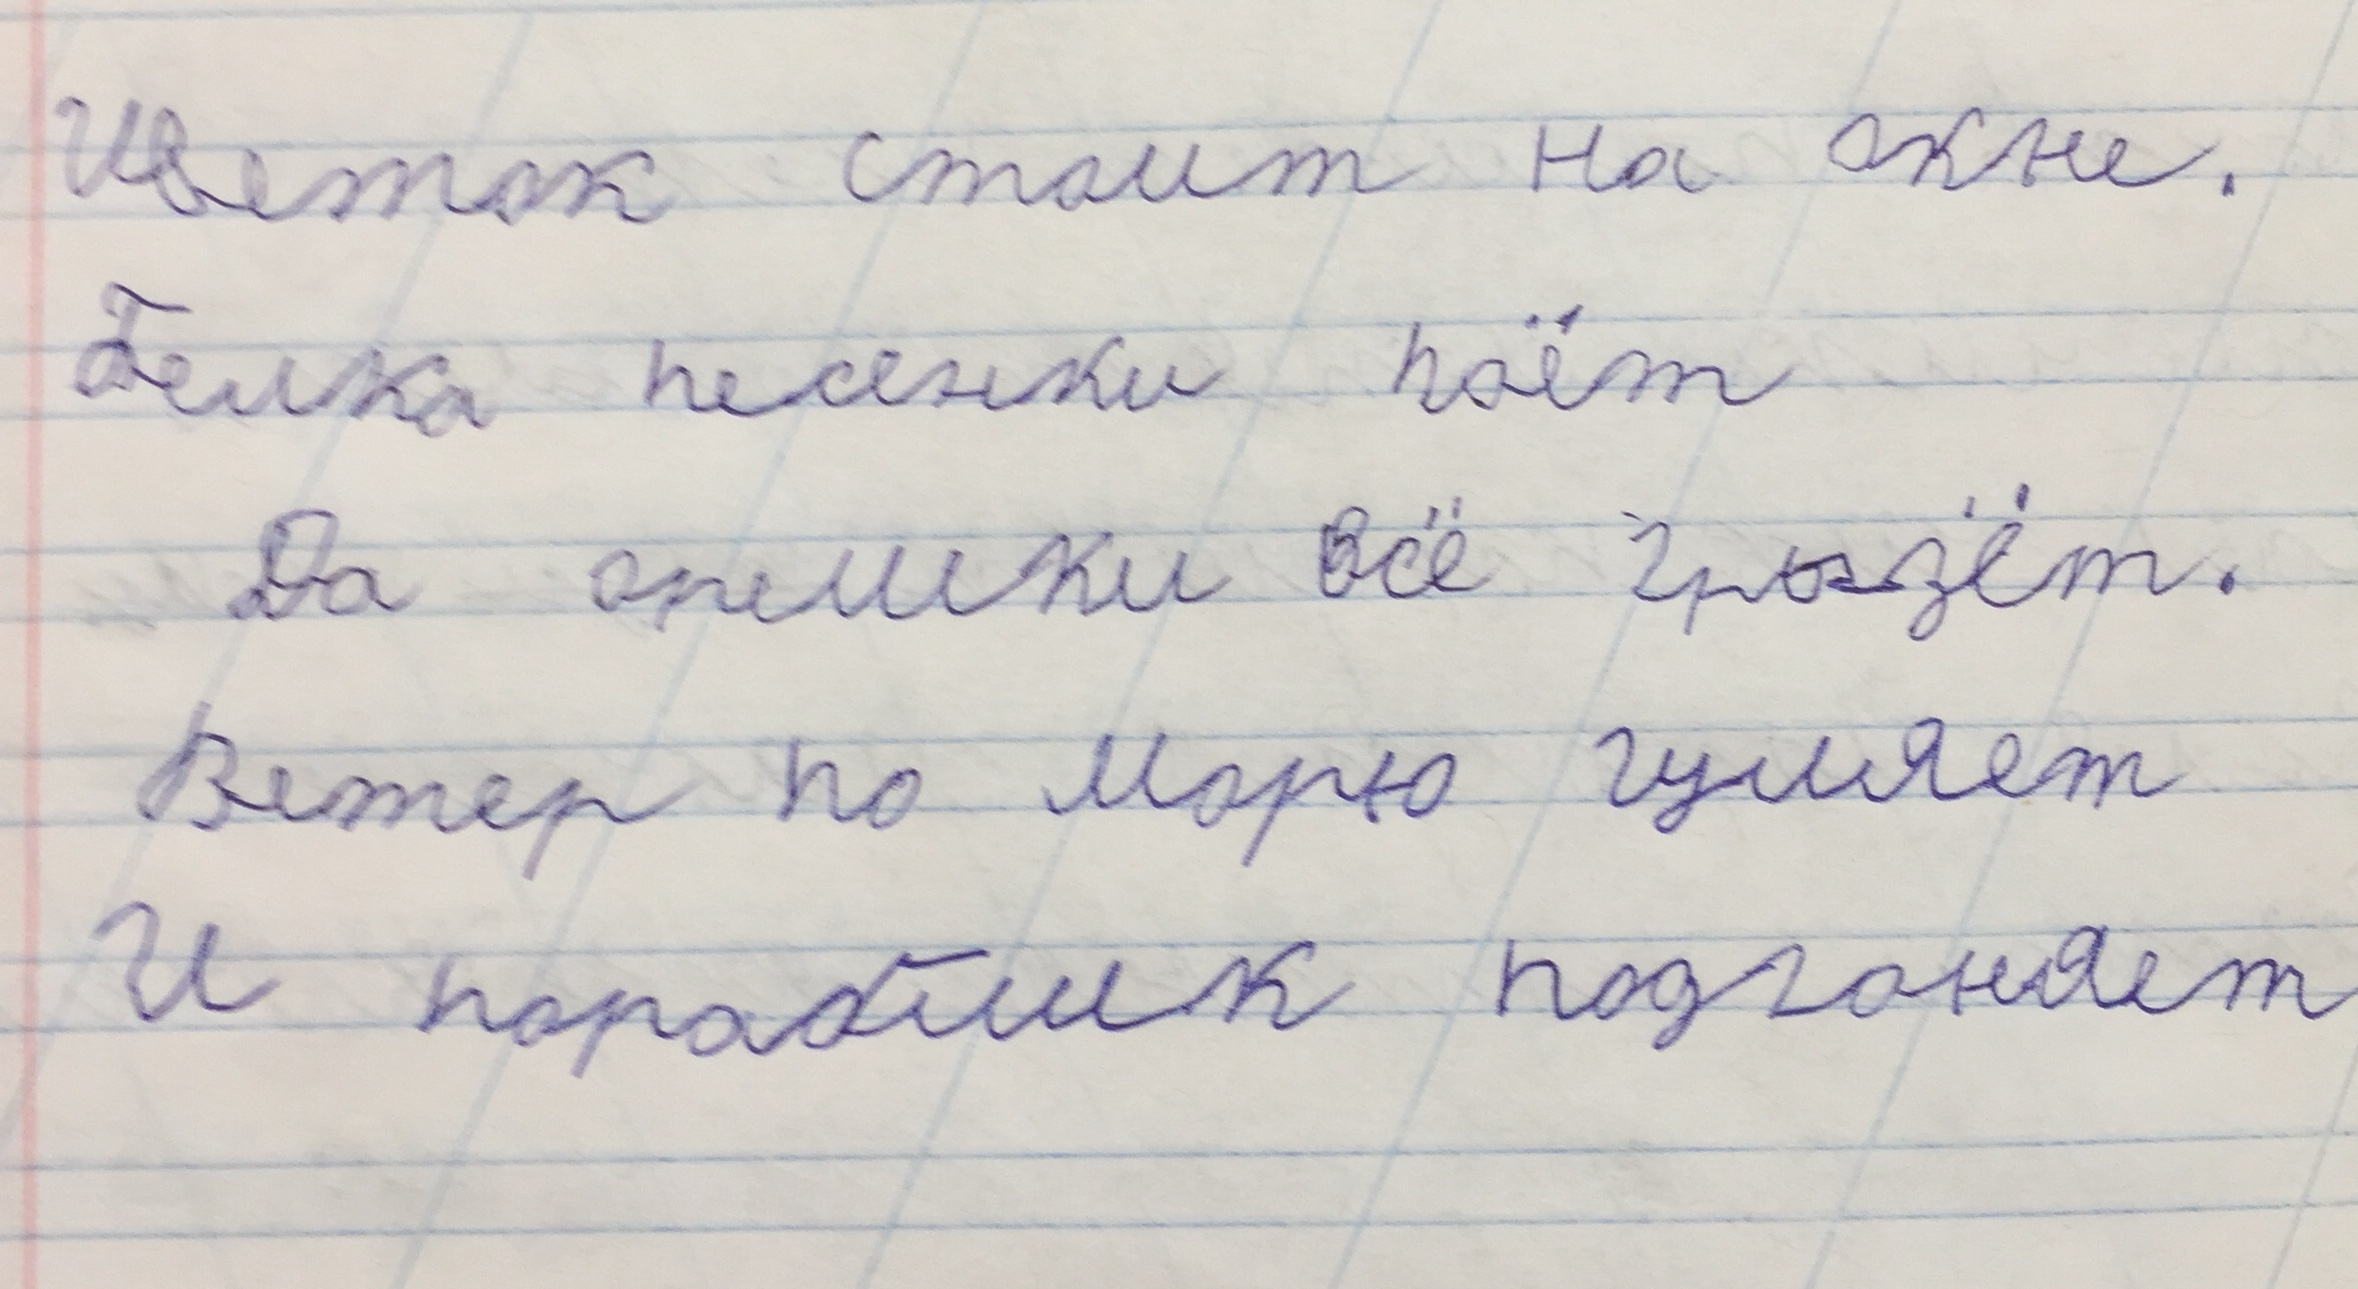 Цветок стоит на окне.
Белка песенки поёт
Да орешки всё грызёт.
Ветер по морю гуляет
И пораблик подгоняет